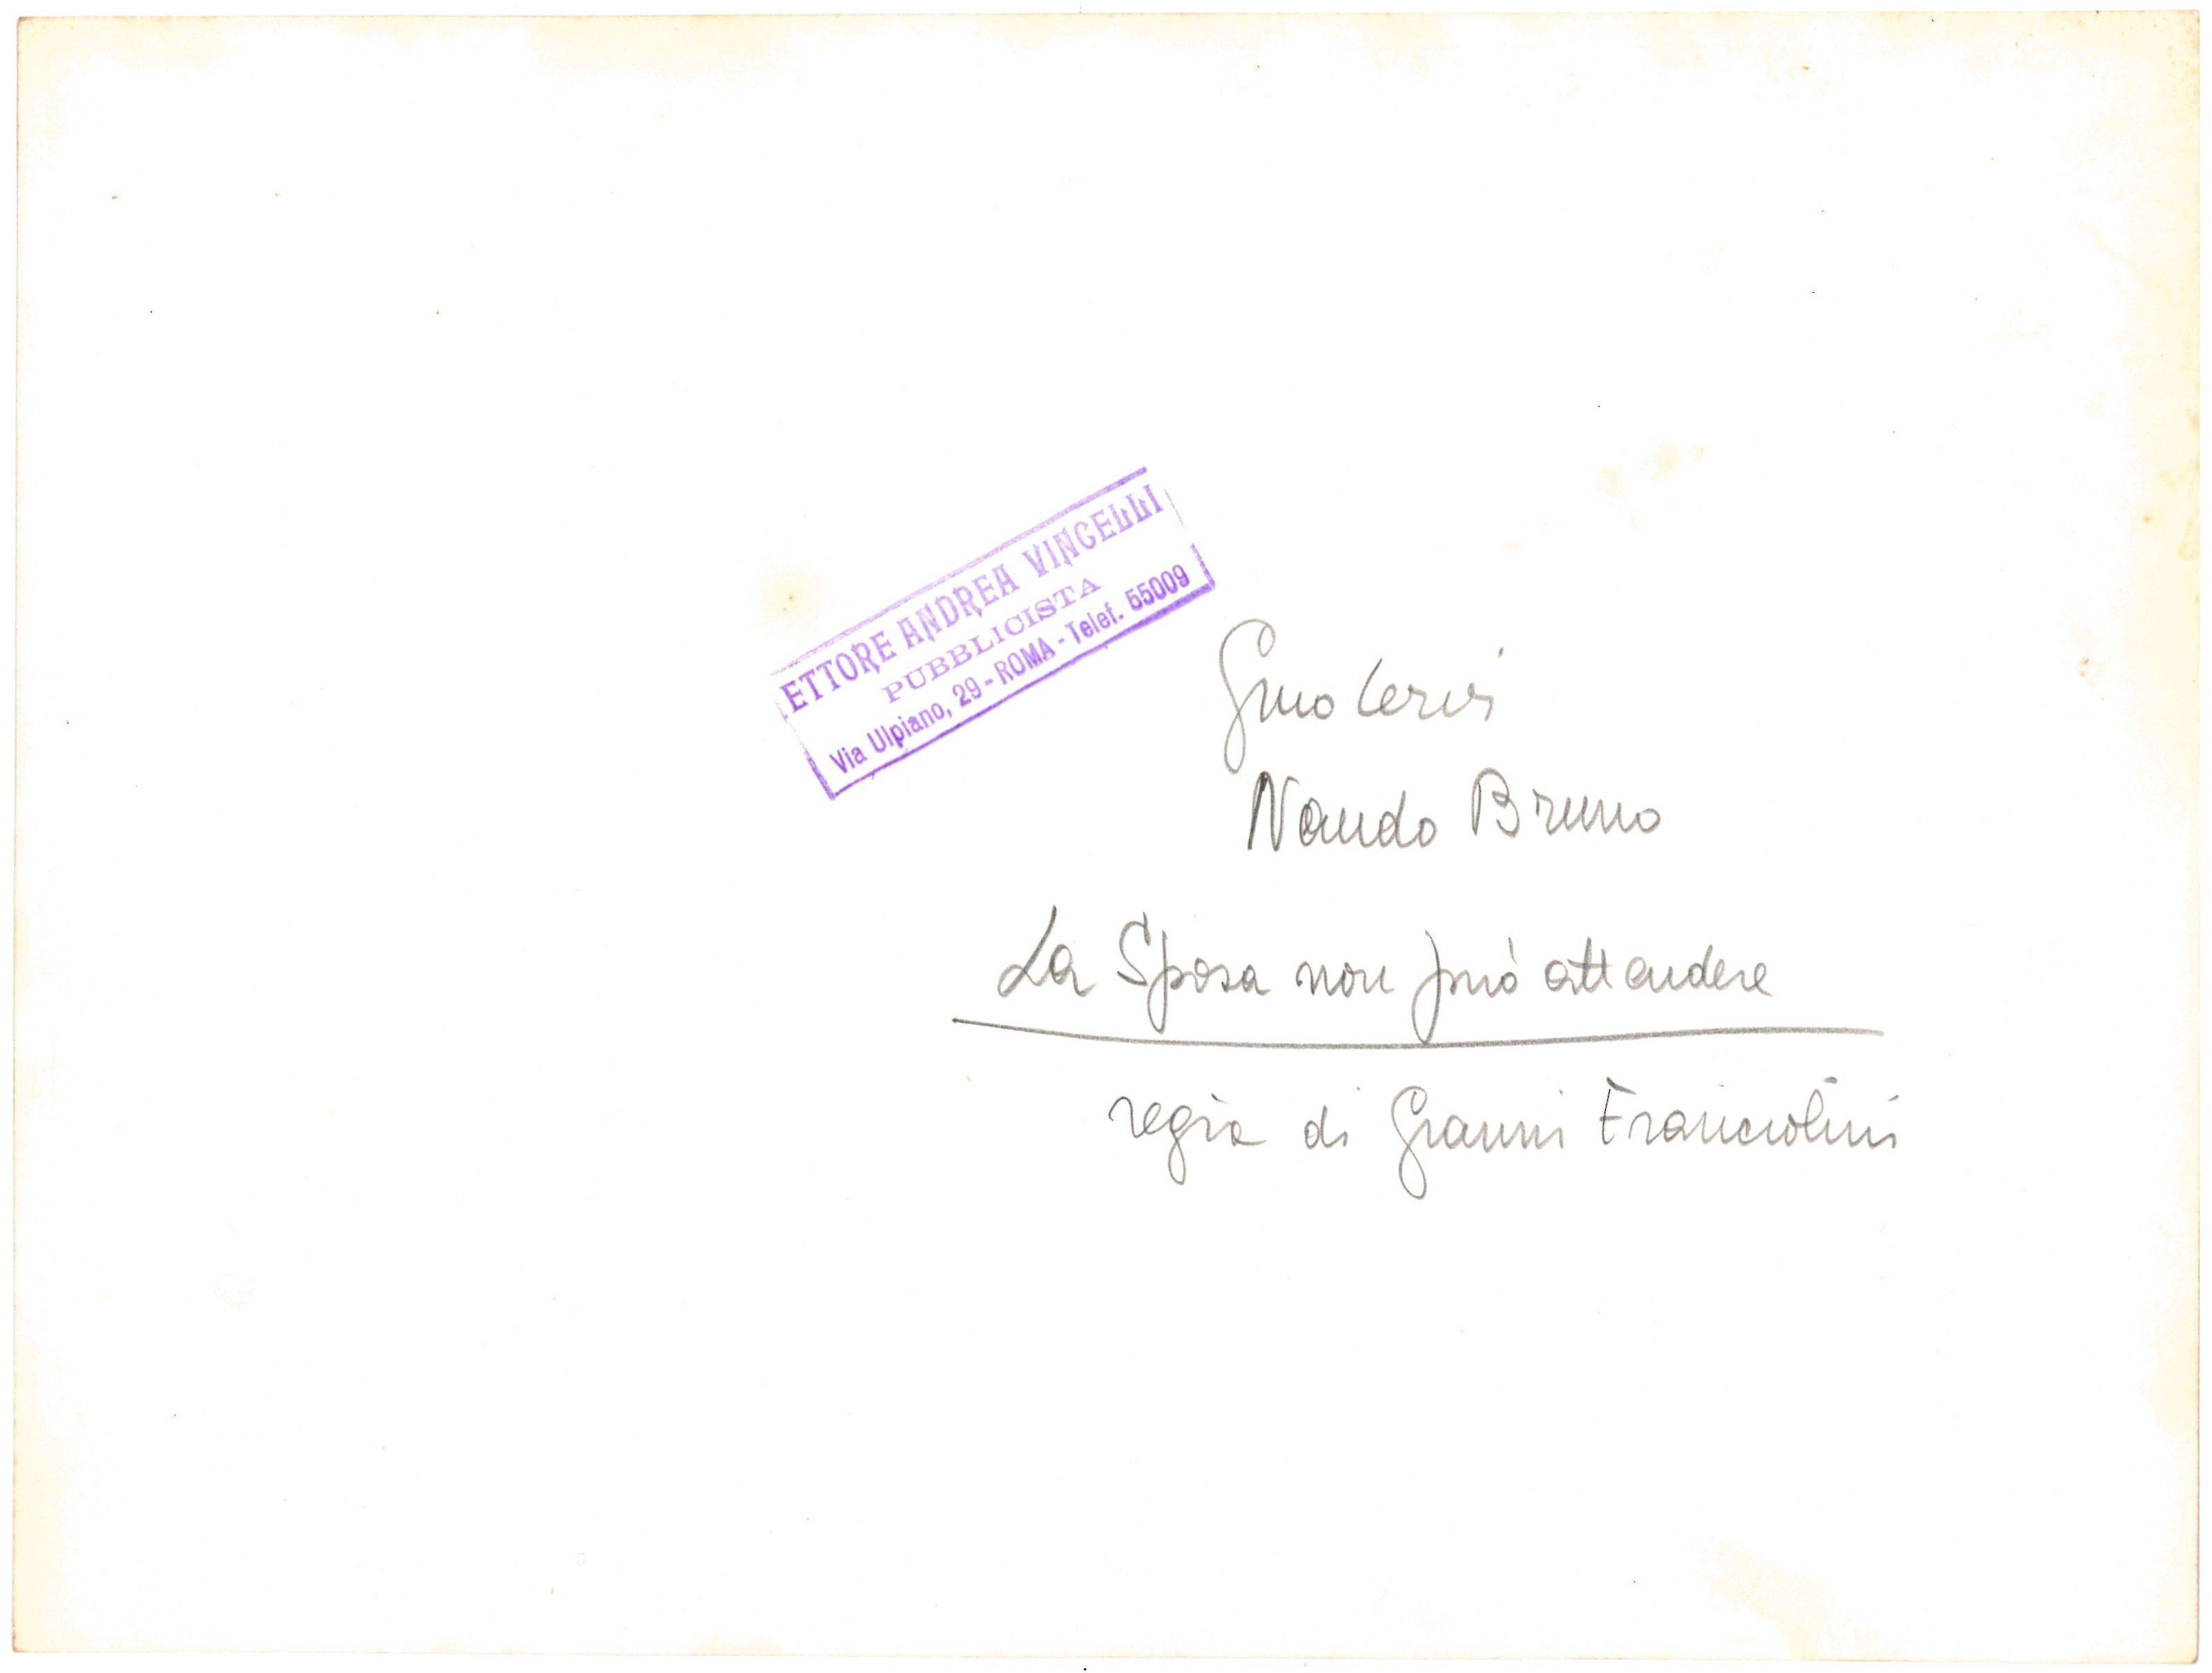 ETTORE ANDREA VINCELLI
PUBBLICISTA
Via Ulpiano, 29 - ROMA - Telef. 55009
Gino Cervi
Nando Bruno
La Sposa non può attendere
regia di Gianni Franciolini